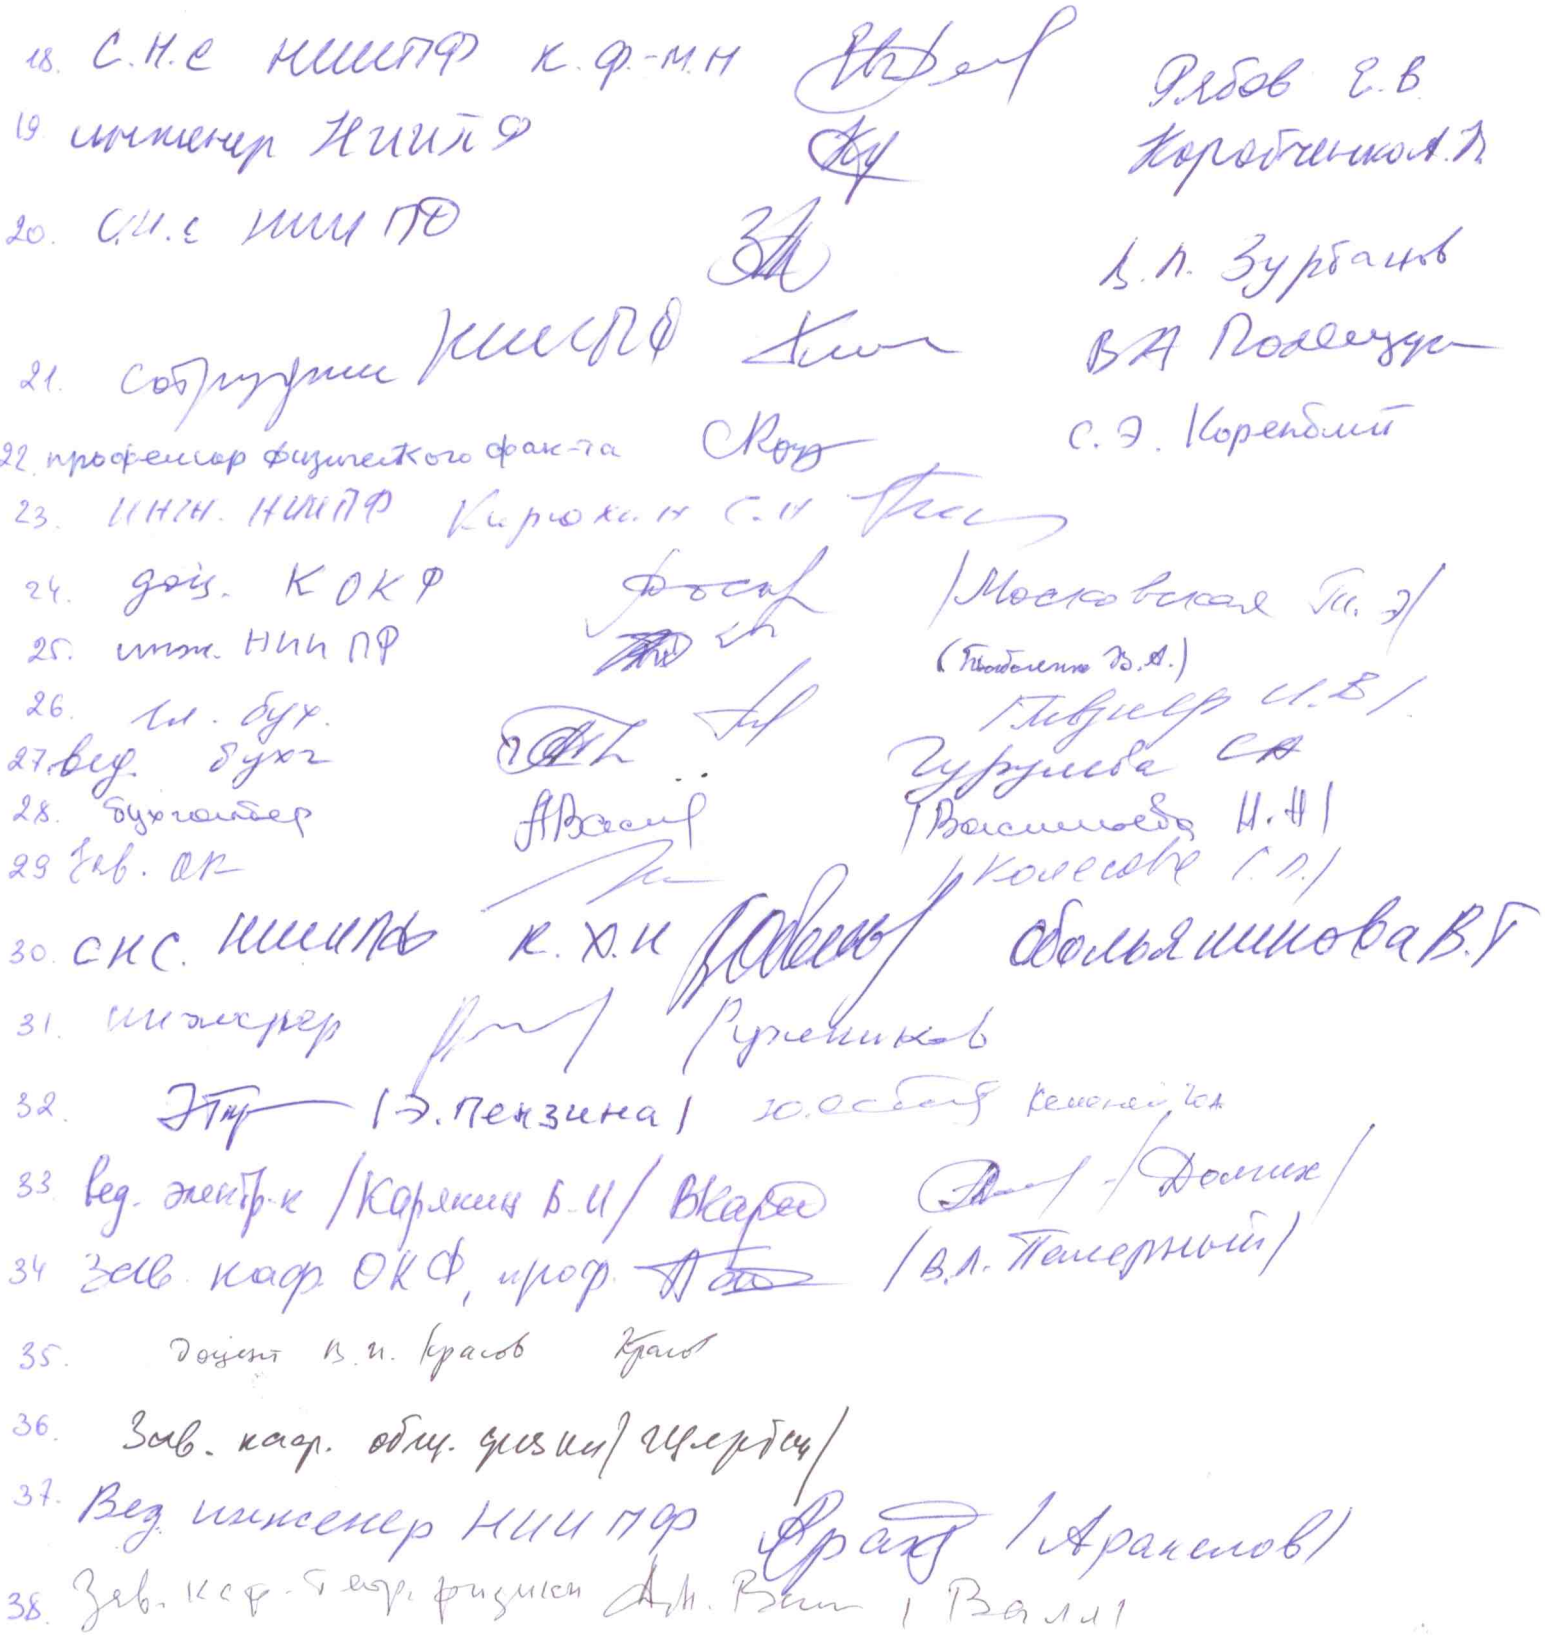 18. С.Н.С НИИПФ К.Ф.-М.Н Рябов Е.В.
19 инженер НИИПФ Коробченко А.П.
20. С.Н.С НИИ ПФ В.П. Зурбанов
21. Сотрудник НИИПФ В А Полещук
22. профессор физического фак-та С.Э. Коренблит
23. инж. НИИПФ Кирюхин С.Н
24. доц. КОКФ /Московская Т. Э/
25. инж. НИИ ПФ
26. гл. бух. И.В/.
27. вед. бухг Гурулева СА
28. бухгалтер /Васильева Н.Н/
29 Зав. ОК /Колесова С.П./
30. СНС. НИИПФ К.Х.Н Обольянинова В.Г
31. инженер
32. /Э.Пензина/
33 вед. электр-к /Карякин В.И/ /Долгих/
34 Зав. каф. ОКФ, проф. /В.Л. Паперный/
35. доцент В.И. Красов
36. Зав. каф. общ. физики /Щербин/
37. Вед. инженер НИИПФ /Аракелов/
38. Зав. каф. теор. физики /Валл/